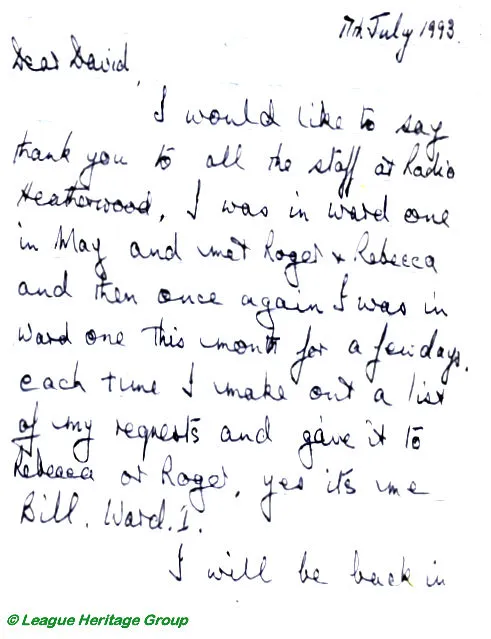 17th July 1993.
Dear David,
I would like to say
thank you to all the staff at Radio
Heatherwood, I was in ward one
in May and met Roger & Rebecca
and then once again I was in
Ward one this month for a few days.
each time I make out a list
of my requests and gave it to
Rebecca or Roger, yes its me
Bill. Ward. 1.
I will be back in
© League Heritage Group